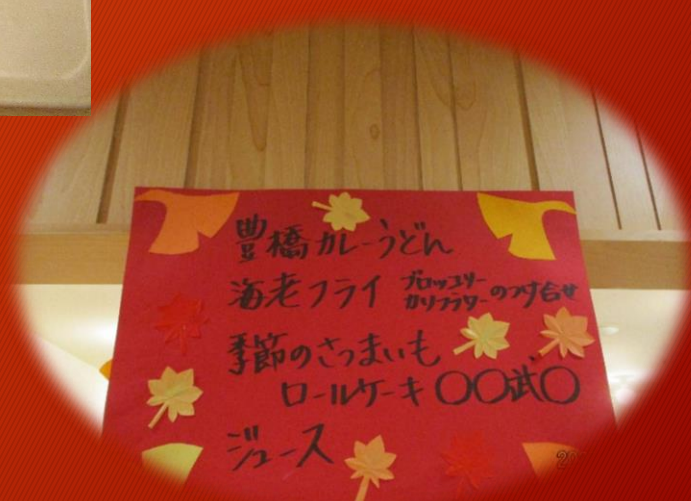 豊橋カレーうどん
海老フライ ブロッコリー カリフラワーのつけ合せ
季節のさつまいも
ロールケーキ〇〇武〇
ジュース